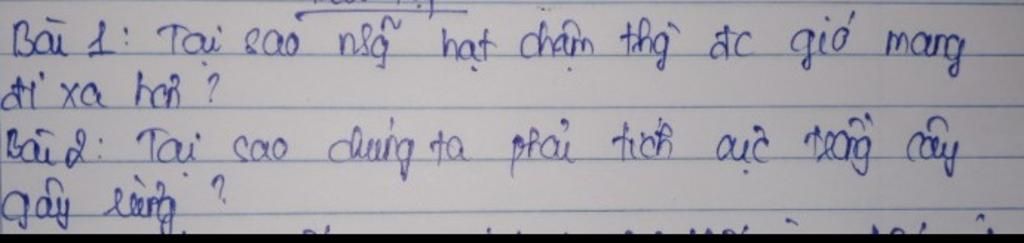 Bài 1: Tại sao nhg~ hạt chậm thg` đc gió mang
đi xa hơn?
Bài 2: Tại sao chúng ta phải tích cực trồng cây
gây rừng?